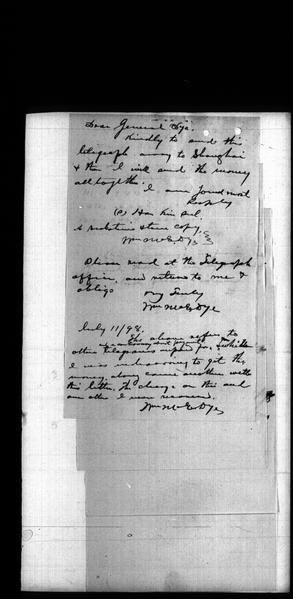 Dear General Dye.
Kindly to send this
telegraph away to Shanghai
& then I will send the money
all together. I am Yours most
A substance & true copy,
Wm McE Dye
Please send at the Telegraph
office, and return to me &
oblige
Very Truly
Wm McE Dye
July 11/98.
The above refers to
other telegrams for, while
I was endeavoring to get the
money, along came another with
this letter. The charge on this and
one other I never received.
Wm McE Dye